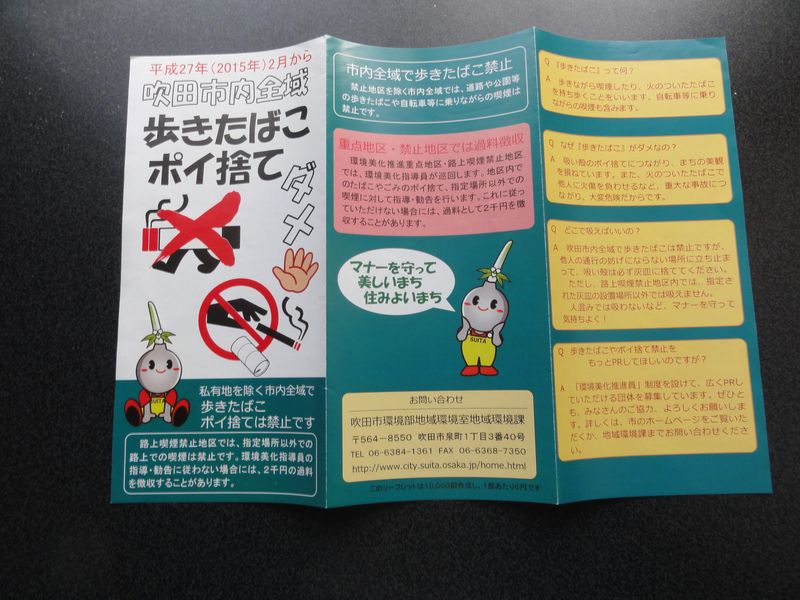 平成27年(2015年)2月から
吹田市内全域
歩きたばこ
ポイ捨て
ダメ
SUITA
私有地を除く市内全域で
歩きたばこ
ポイ捨ては禁止です
路上喫煙禁止地区では、指定場所以外での
路上での喫煙は禁止です。環境美化指導員の
指導・勧告に従わない場合には、2千円の過料
を徴収することがあります。
市内全域で歩きたばこ禁止
禁止地区を除く市内全域では、道路や公園等
の歩きたばこや自転車等に乗りながらの喫煙は
禁止です。
重点地区・禁止地区では過料徴収
環境美化推進重点地区・路上喫煙禁止地区
では、環境美化指導員が巡回します。地区内で
のたばこやごみのポイ捨て、指定場所以外での
喫煙に対して指導・勧告を行います。これに従っ
ていただけない場合には、過料として2千円を徴
収することがあります。
マナーを守って
美しいまち
住みよいまち
SUITA
お問い合わせ
吹田市環境部地域環境室地域環境課
〒564-8550 吹田市泉町1丁目3番40号
TEL 06-6384-1361 FAX 06-6368-7350
http://www.city.suita.osaka.jp/home.html
このリーフレットは10,000部作成し、1部あたり6円です
Q 『歩きたばこ』って何?
A 歩きながら喫煙したり、火のついたたばこ
を持ち歩くことをいいます。自転車等に乗り
ながらの喫煙も含みます。
Q なぜ『歩きたばこ』がダメなの?
A 吸い殻のポイ捨てにつながり、まちの美観
を損ねています。また、火のついたたばこで
他人に火傷を負わせるなど、重大な事故につ
ながり、大変危険だからです。
Q どこで吸えばいいの?
A 吹田市内全域で歩きたばこは禁止ですが、
他人の通行の妨げにならない場所に立ち止ま
って、吸い殻は必ず灰皿に捨ててください。
ただし、路上喫煙禁止地区内では、指定さ
れた灰皿の設置場所以外では吸えません。
人混みでは吸わないなど、マナーを守って
気持ちよく!
Q 歩きたばこやポイ捨て禁止を
もっとPRしてほしいのですが?
A 「環境美化推進員」制度を設けて、広くPRし
ていただける団体を募集しています。ぜひと
も、みなさんのご協力、よろしくお願いしま
す。詳しくは、市のホームページをご覧いた
だくか、地域環境課までお問い合わせくださ
い。